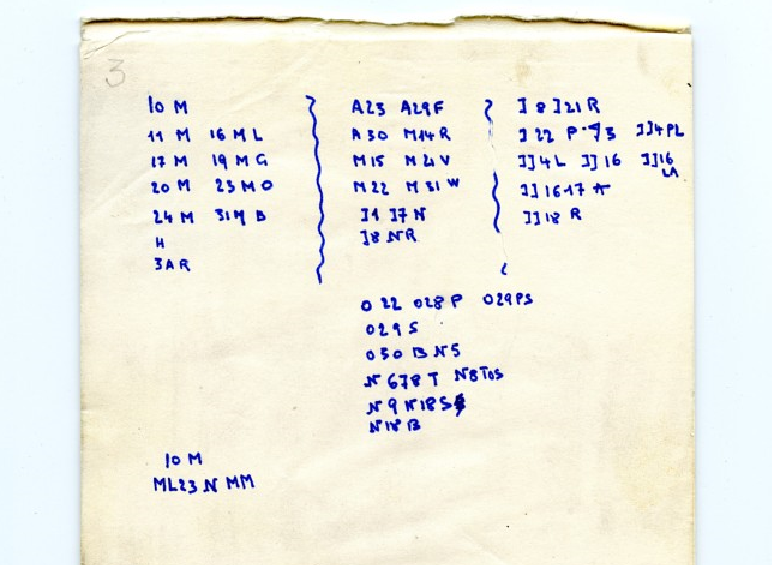 3
10 M
11 M 16 M L
17 M 19 M G
20 M 23 M O
24 M 31 M B
H
3 A R
A23 A29F
A 30 M14 R
M15 M 21 V
M22 M 31 W
J1 J7 N
J8 N R
J 8 J21 R
J 22 P JJ4 PL
JJ4 L JJ 16 JJ16
JJ 16-17
JJ18 R
O 22 O28 P O29PS
O29 S
O30 B N5
N 678 T N8 TOS
N 9 N18 S
N18 B
10 M
ML23 N MM